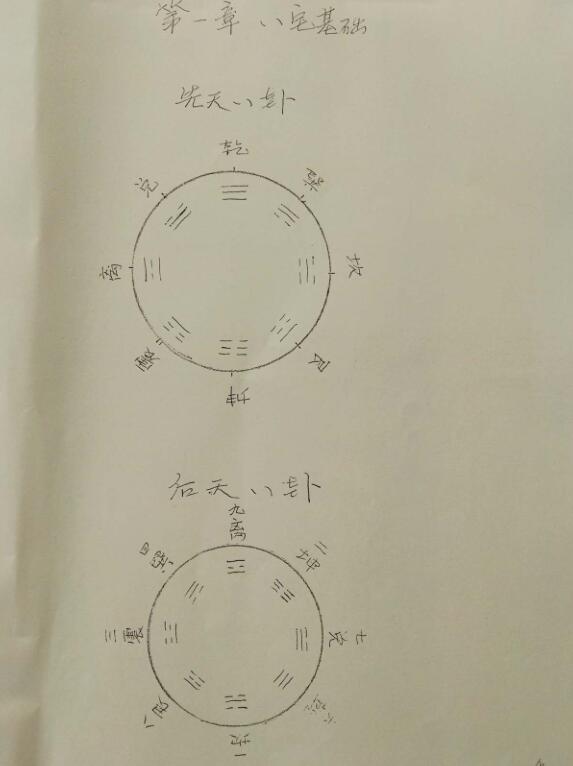 第一章 八宅基础
先天八卦
乾
兑
巽
离
坎
震
艮
坤
后天八卦
九离
四巽
二坤
三震
七兑
八艮
六乾
一坎